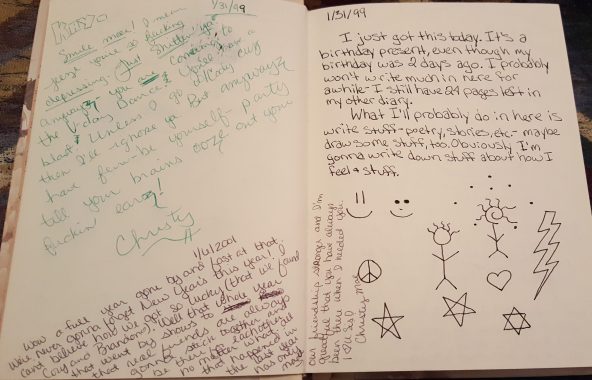 1/31/99
Smile more! I mean
geez you're so fucking
depressing. Just
anyways you a coming to
the f-day Dance?
blast. Unless I go
then I'll ignore ya But anyways
have fun-be yourself-party
till your brains ooze out your
fuckin' ears!
Christy
1/6/2001
Wow a full year gone by and fast at that.
We're never gonna forget New Years this year! I
can't believe how we got so lucky (that we found
Cory and Brandon). Well that whole year
that went by shows to
that real friends are always
gonna stick together and
be there for eachother
no matter what
that happened in
the last year
has only
made
our friendship stronger and I'm
grateful that you have always
been there when I needed you
Christy Mae
1/31/99
I just got this today. It's a
birthday present, even though my
birthday was 2 days ago. I probably
won't write much in here for
awhile-I still have 29 pages left in
my other diary.
What I'll probably do in here is
write stuff-poetry, stories, etc- maybe
draw some stuff, too. Obviously I'm
gonna write down stuff about how I
feel & stuff.